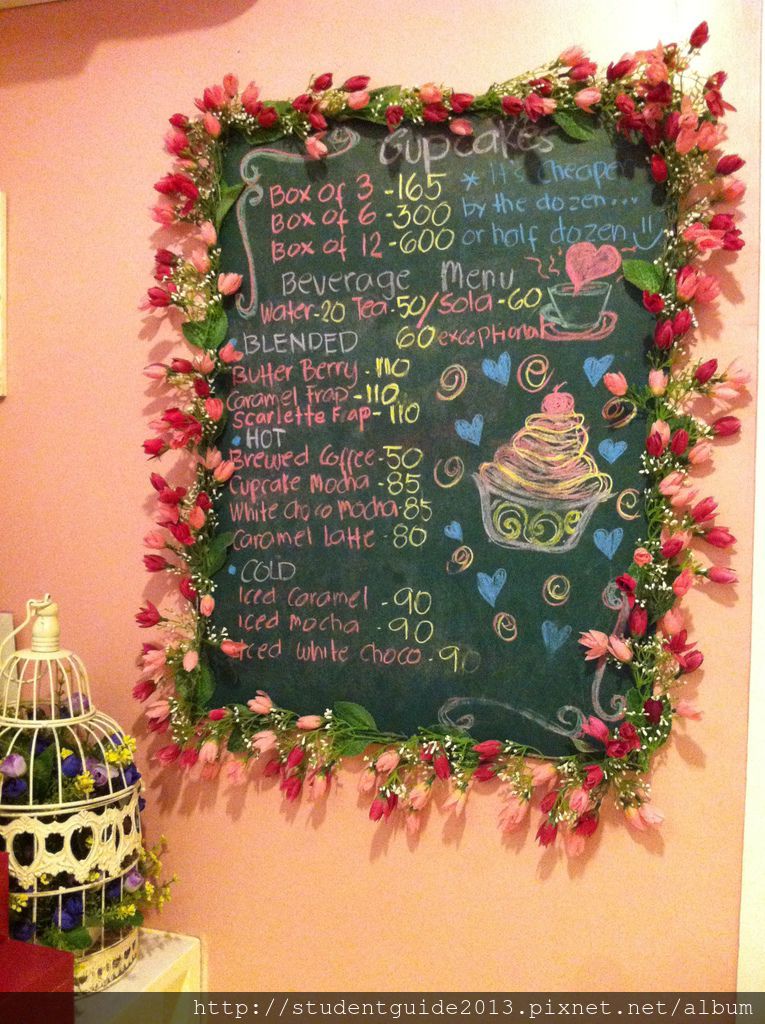 Cupcakes
Box of 3 -165
Box of 6 -300
Box of 12 -600
* It's cheaper
by the dozen...
or half dozen
Beverage Menu
Water-20 Tea-50/Sola-60
60 exceptional
• BLENDED
Butter Berry - 110
Caramel Frap -110
Scarlette Frap- 110
• HOT
Brewed Coffee -50
Cupcake Mocha -85
White Choco Mocha-85
Caramel Latte - 80
• COLD
Iced Caramel -90
Iced Mocha -90
Iced White Choco -90
http://studentguide2013.pixnet.net/album